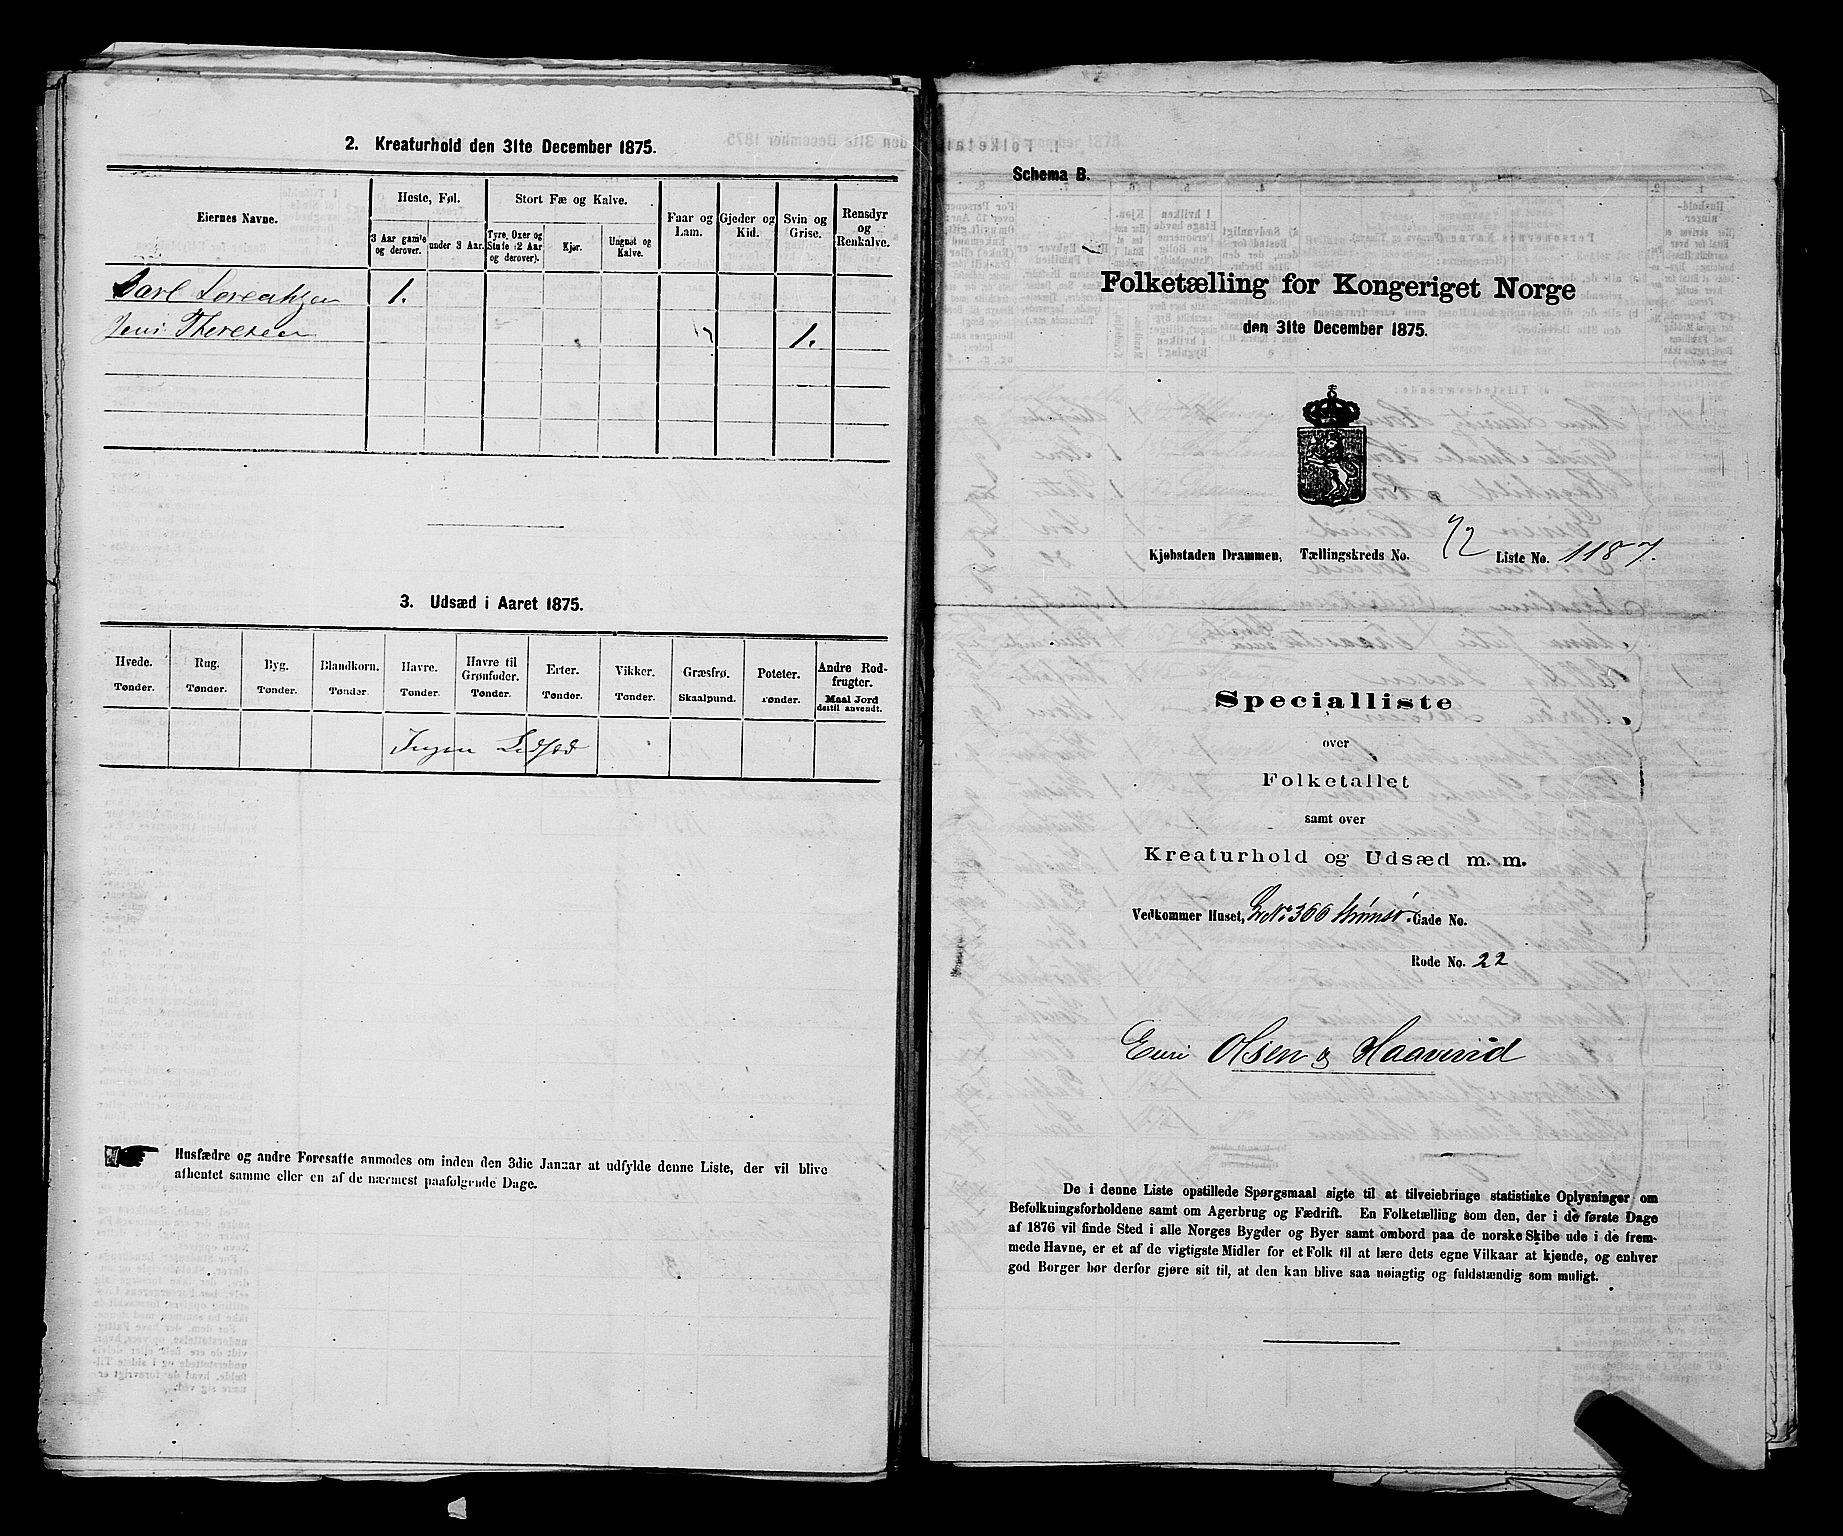 2. Kreaturhold den 31te December 1875.
Eiernes Navne.
Heste, Føl.
Stort Fæ og Kalve.
Faar og Lam.
Gjeder og Kid.
Svin og Grise.
Rensdyr og Renkalve.
3 Aar gamle og derover.
under 3 Aar.
Tyre, Oxer og Stude (2 Aar og derover).
Kjør.
Ungnøt og Kalve.
Carl Lorentzen 1.
Jens Theresen 1.
3. Udsæd i Aaret 1875.
Hvede. Rug. Byg. Blandkorn. Havre. Havre til Grønfoder. Erter. Vikker. Græsfrø. Poteter. Andre Rodfrugter.
Tønder. Tønder. Tønder. Tønder. Tønder. Tønder. Tønder. Tønder. Skaalpund. Tønder. Maal Jord dertil anvendt.
Ingen Udsæd
Husfædre og andre Foresatte anmodes om inden den 3die Januar at udfylde denne Liste, der vil blive
afhentet samme eller en af de nærmest paafølgende Dage.
Schema B.
Folketælling for Kongeriget Norge
den 31te December 1875.
Kjøbstaden Drammen, Tællingskreds No. 12 Liste No. 1187.
Specialliste
over
Folketallet
samt over
Kreaturhold og Udsæd m. m.
Vedkommer Huset, No 366 Strømsø. Gade No.
Rode No. 22
Eier Olsen & Haavind
De i denne Liste opstillede Spørgsmaal sigte til at tilveiebringe statistiske Oplysninger om
Befolkningsforholdene samt om Agerbrug og Fædrift. En Folketælling som den, der i de første Dage
af 1876 vil finde Sted i alle Norges Bygder og Byer samt ombord paa de norske Skibe ude i de frem-
mede Havne, er et af de vigtigste Midler for et Folk til at lære dets egne Vilkaar at kjende, og enhver
god Borger bør derfor gjøre sit til, at den kan blive saa nøiagtig og fuldstændig som muligt.